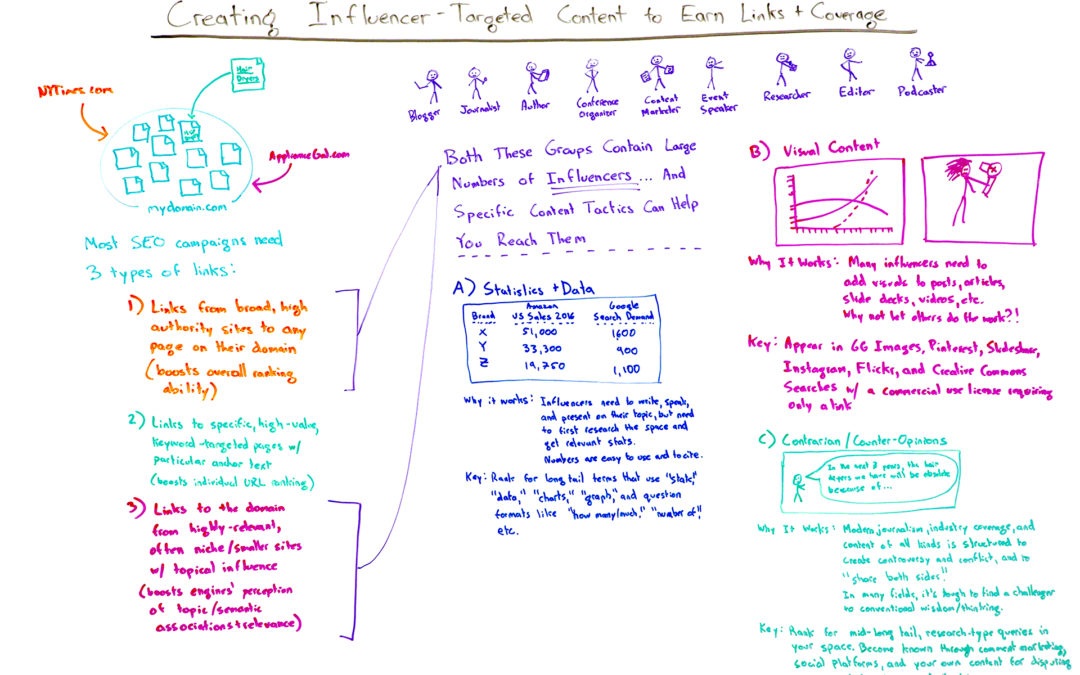 Creating Influencer-Targeted Content to Earn Links + Coverage
NYTimes.com
Hair
Dryers
ApplianceGal.com
mydomain.com
Most SEO campaigns need
3 types of links:
1) Links from broad, high
authority sites to any
page on their domain
(boosts overall ranking
ability)
2) Links to specific, high-value,
keyword-targeted pages w/
particular anchor text
(boosts individual URL ranking)
3) Links to the domain
from highly-relevant,
often niche/smaller sites
w/ topical influence
(boosts engines' perception
of topic/semantic
associations+relevance)
Blogger
Journalist
Author
Conference
Organizer
Content
Marketer
Event
Speaker
Researcher
Editor
Podcaster
Both These Groups Contain Large
Numbers of Influencers... And
Specific Content Tactics Can Help
You Reach Them
A) Statistics + Data
Brand Amazon US Sales 2016 Google Search Demand
X 51,000 1600
Y 33,300 900
Z 19,750 1,100
Why it works: Influencers need to write, speak,
and present on their topic, but need
to first research the space and
get relevant stats.
Numbers are easy to use and to cite.
Key: Rank for long tail terms that use "stats,"
"data," "charts," "graph," and question
formats like "how many/much," "number of,"
etc.
B) Visual Content
Why It Works: Many influencers need to
add visuals to posts, articles,
slide decks, videos, etc.
Why not let others do the work?!
Key: Appear in GG Images, Pinterest, Slideshare,
Instagram, Flickr, and Creative Commons
Searches w/ a commercial use license requiring
only a link
C) Contrarian/Counter-Opinions
In the next 3 years, the hair
dryers we have will be obsolete
because of...
Why It Works: Modern journalism, industry coverage, and
content of all kinds is structured to
create controversy and conflict, and to
"share both sides."
In many fields, it's tough to find a challenger
to conventional wisdom/thinking.
Key: Rank for mid-long tail, research-type queries in
your space. Become known through comment marketing,
social platforms, and your own content for disputing